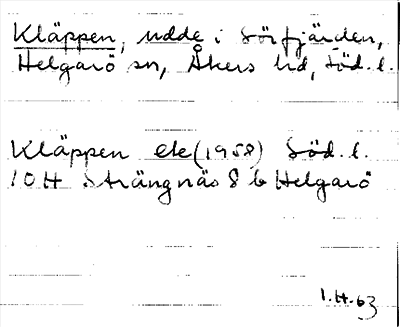 Kläppen, udde i Sörfjärden,
Helgarö sn, Åkers hd, Söd. l.
Kläppen ek (1958) Söd. l.
10H Strängnäs 8 b Helgarö
1.H.63